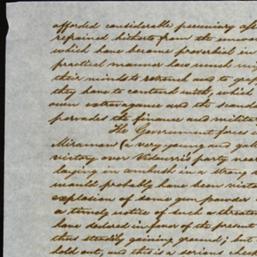 afforded considerable pecuniary
repaired hitherto from the
which have become proverbial in
practical manner how much
their minds to retrench and to
they have to contend with, which
own extravagance and the
pervades the finance and
The Government forces
Miramon (a very young and
victory over Vidaurri's party near
laying in ambush in a strong
would probably have been
explosion of some gun powder
a timely notice of such a
have declared in favor of the present
thus steadily gaining ground; but
hold out, and this is a serious